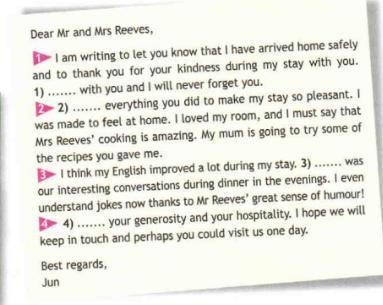 Dear Mr and Mrs Reeves,
1 I am writing to let you know that I have arrived home safely
and to thank you for your kindness during my stay with you.
1) ....... with you and I will never forget you.
2 2) ....... everything you did to make my stay so pleasant. I
was made to feel at home. I loved my room, and I must say that
Mrs Reeves' cooking is amazing. My mum is going to try some of
the recipes you gave me.
3 I think my English improved a lot during my stay. 3) ....... was
our interesting conversations during dinner in the evenings. I even
understand jokes now thanks to Mr Reeves' great sense of humour!
4 4) ....... your generosity and your hospitality. I hope we will
keep in touch and perhaps you could visit us one day.
Best regards,
Jun